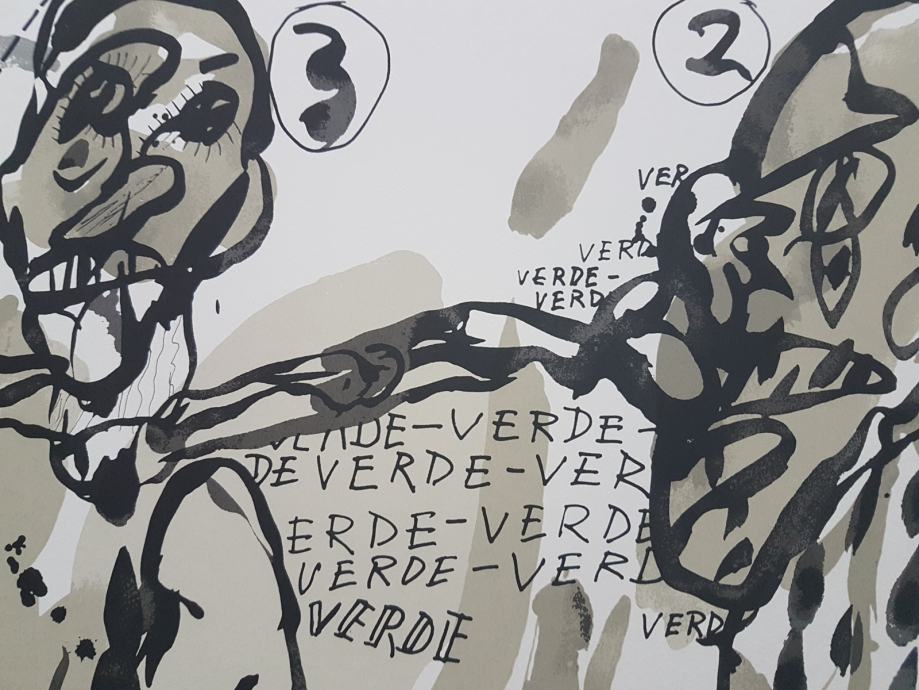 3
2
VER
VERD
VERDE-
VERD
VERDE-VERDE-
DEVERDE-VER
ERDE-VERDE
VERDE-VERD
VERDE
VERD